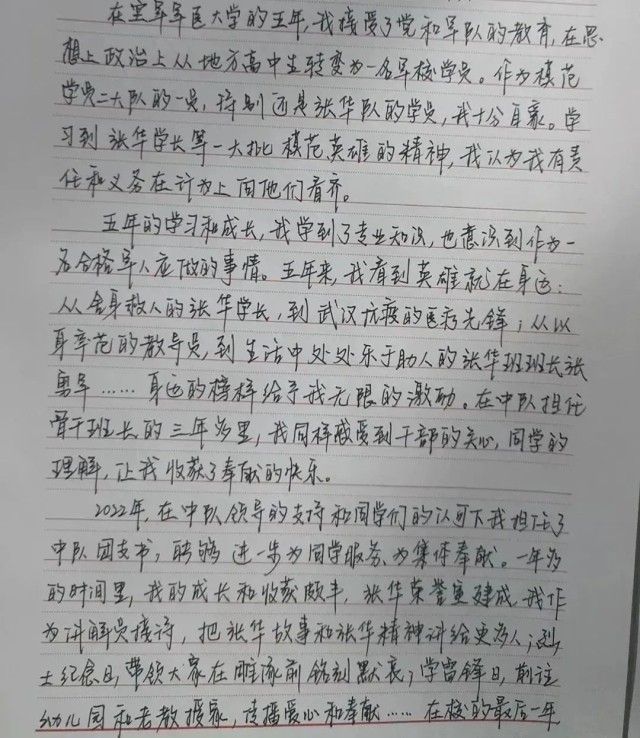 在空军军医大学的五年,我接受了党和军队的教育,在思
想上政治上从地方高中生转变为一名军校学员。作为模范
学员二大队的一员,特别还是张华队的学员,我十分自豪。学
习到张华学长等一大批模范英雄的精神,我认为我有责
任和义务在行为上向他们看齐。
五年的学习和成长,我学到了专业知识,也意识到作为一
名合格军人应做的事情。五年来,我看到英雄就在身边:
从舍身救人的张华学长,到武汉抗疫的医疗先锋;从以
身率范的教导员,到生活中处处乐于助人的张华班班长张
勇军……身边的榜样给予我无限的激励。在中队担任
骨干班长的三年多里,我同样感受到干部的关心,同学的
理解,让我收获了奉献的快乐。
2022年,在中队领导的支持和同学们的认可下我担任了
中队团支书,能够进一步为同学服务、为集体奉献。一年多
的时间里,我的成长和收获颇丰,张华荣誉室建成,我作
为讲解员接待,把张华故事和张华精神讲给更多人;烈
士纪念日,带领大家在雕塑前鞠躬默哀;学雷锋日,前往
幼儿园和老教授家,传播爱心和奉献……在校的最后一年